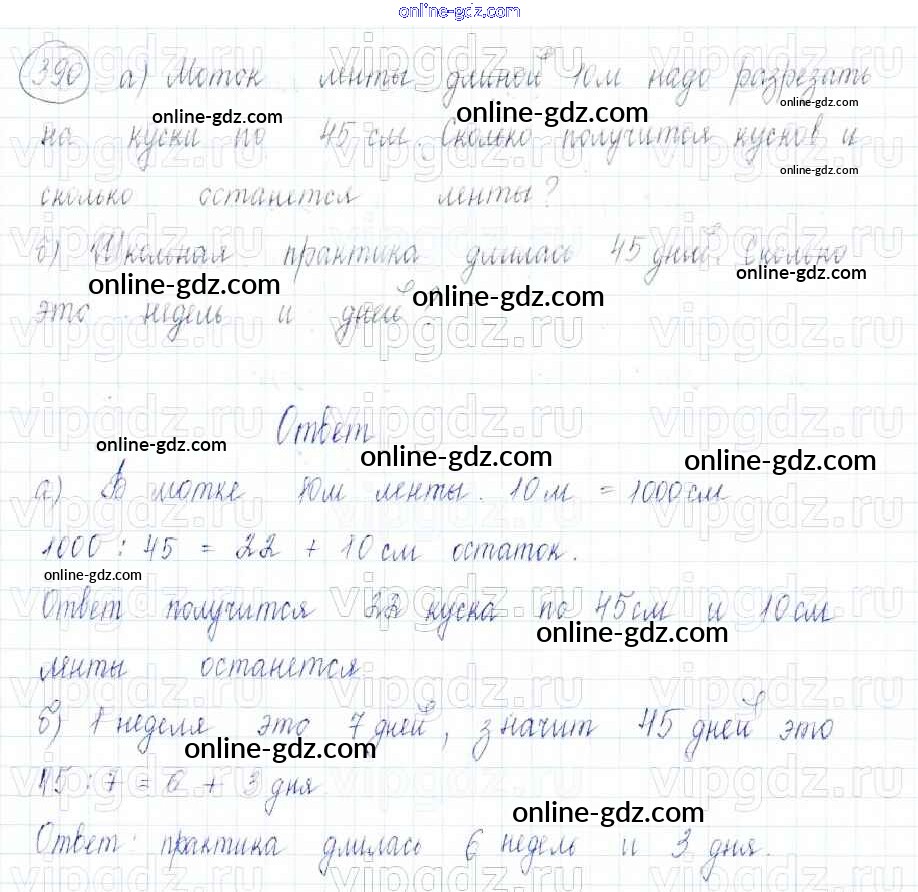 online-gdz.com
390 а) Моток ленты длиной 10м надо разрезать
на куски по 45 см. Сколько получится кусков и
сколько останется ленты?
б) Школьная практика длилась 45 дней. Сколько
это недель и дней?
Ответ
а) В мотке 10м ленты. 10м = 1000см
1000 : 45 = 22 + 10 см остаток.
Ответ получится 22 куска по 45см и 10см
ленты останется
б) 1 неделя это 7 дней, значит 45 дней это
45 : 7 = 6 + 3 дня
Ответ: практика длилась 6 недель и 3 дня.
online-gdz.com
online-gdz.com
online-gdz.com
online-gdz.com
online-gdz.com
online-gdz.com
online-gdz.com
online-gdz.com
online-gdz.com
online-gdz.com
online-gdz.com
online-gdz.com
online-gdz.com
online-gdz.com
vipgdz.ru